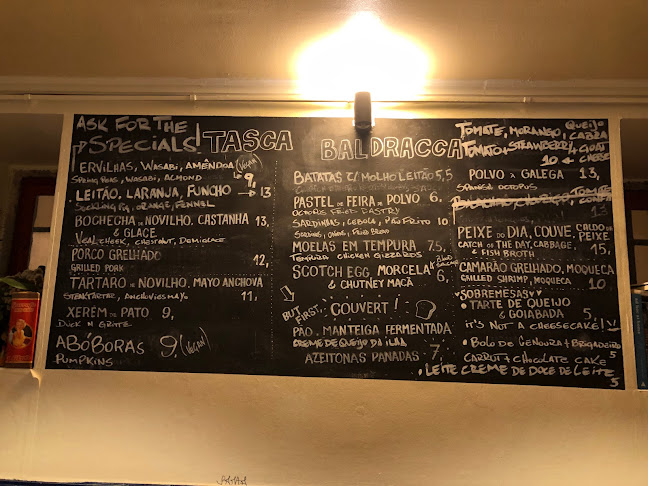 ASK FOR THE
SPECIALS!
TASCA BALDRACCA
ERVILHAS, WASABI, AMÊNDOA (VEGAN)
SPRING PEAS, WASABI, ALMOND 9,
LEITÃO, LARANJA, FUNCHO → 13
SUCKLING PIG, ORANGE, FENNEL
BOCHECHA DE NOVILHO, CASTANHA 13,
& GLACE
VEAL CHEEK, CHESTNUT, DEMIGLACE
PORCO GRELHADO
GRILLED PORK 12,
TARTARO DE NOVILHO, MAYO ANCHOVA
STEAK TARTAR, ANCHOVIES MAYO 11,
XERÉM DE PATO 9,
DUCK N GRITS
ABÓBORAS 9, (VEGAN)
PUMPKINS
BATATAS C/ MOLHO LEITÃO 5,5
PASTEL DE FEIRA DE POLVO 6,
OCTOPUS FRIED PASTRY
SARDINHAS, CEBOLA, PÃO FRITO 10
SARDINES, ONIONS, FRIED BREAD
MOELAS EM TEMPURA 7,5,
TEMPURA CHICKEN GIZZARDS
SCOTCH EGG, MORCELA 6,
& CHUTNEY MAÇÃ
BUT FIRST,
COUVERT!
PÃO, MANTEIGA FERMENTADA
CREME DE QUEIJO DA ILHA
AZEITONAS PANADAS 7,
TOMATE, MORANGO, QUEIJO CABRA
TOMATO, STRAWBERRY, GOAT CHEESE
10
POLVO À GALEGA 13,
SPANISH OCTOPUS
13
PEIXE DO DIA, COUVE, CALDO DE PEIXE
CATCH OF THE DAY, CABBAGE,
& FISH BROTH 15,
CAMARÃO GRELHADO, MOQUECA
GRILLED SHRIMP, MOQUECA 10
SOBREMESAS!
• TARTE DE QUEIJO
& GOIABADA 5,
IT'S NOT A CHEESECAKE!
• BOLO DE CENOURA + BRIGADEIRO
CARROT + CHOCOLATE CAKE 5
• LEITE CREME DE DOCE DE LEITE
5